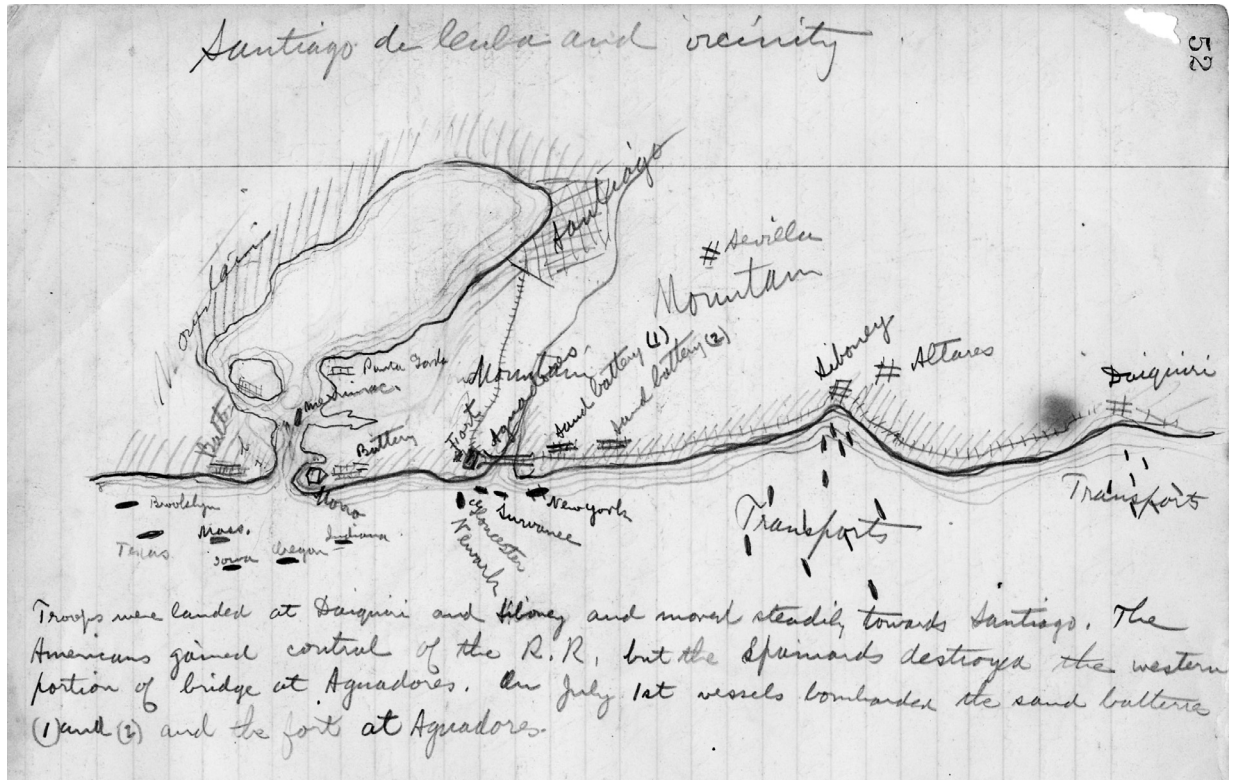 Santiago de Cuba and vicinity
52
Santiago
Sevilla
Mountain
Siboney
Altares
Daiquiri
Sand battery (1)
Sand battery (2)
Mountains
Aguadores
Fort
Punta Gorda
Merrimac
Battery
Battery
Morro
Brooklyn
Texas
Mass.
Iowa
Oregon
Indiana
Gloucester
Newark
Survanee
New York
Transports
Transports
Troops were landed at Daiquiri and Siboney and moved steadily towards Santiago. The
Americans gained control of the R.R., but the Spaniards destroyed the western
portion of bridge at Aguadores. On July 1st vessels bombarded the sand batteries
(1) and (2) and the fort at Aguadores.